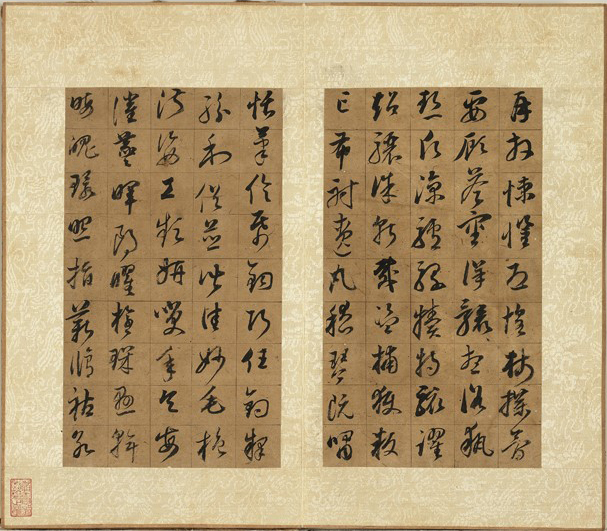 再拜悚懼恐惶牋牒簡
要顧答審詳骸想浴執
熱願涼驢騾犢特駭躍
超驤誅斬賊盜捕獲叛
亡布射遼丸嵇琴阮嘯
恬筆倫紙鈞巧任釣釋
紛利俗並皆佳妙毛施
淑姿工顰妍笑年矢每
催羲暉朗曜璇璣懸斡
晦魄環照指薪修祜永